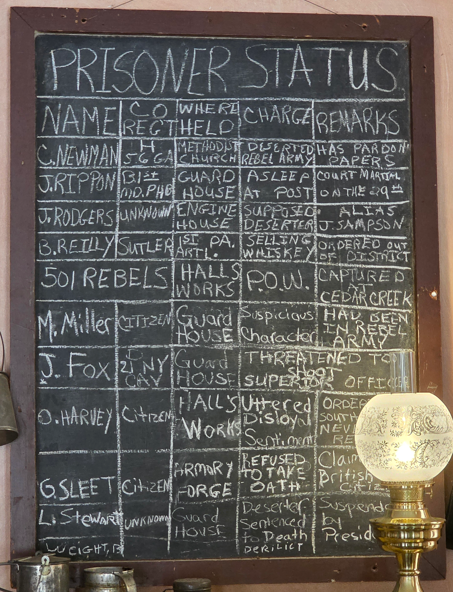 PRISONER STATUS
NAME CO REGT WHERE HELD CHARGE REMARKS
C. NEWMAN H 56 GA METHODIST CHURCH DESERTED REBEL ARMY HAS PARDON PAPERS
J. RIPPON GUARD HOUSE ASLEEP AT POST COURT MARTIAL ON THE 29th
J. RODGERS UNKNOWN ENGINE HOUSE SUPPOSED DESERTER ALIAS J. SAMPSON
B. REILLY SUTLER 1ST PA. ARTL. SELLING WHISKEY ORDERED OUT OF DISTRICT
501 REBELS HALLS WORKS P.O.W. CAPTURED AT CEDAR CREEK
M. Miller CITIZEN Guard HOUSE Suspicious Character HAD BEEN IN REBEL ARMY
J. Fox D 21 NY CAV Guard HOUSE THREATENED TO SHOOT SUPERIOR OFFICER
O. HARVEY Citizen HALL'S WORKS Uttered Disloyal Sentiment
G. SLEET Citizen ARMORY FORGE REFUSED TO TAKE OATH
L. Stewart UNKNOWN Guard HOUSE Deserter Sentenced to Death DERILICT by